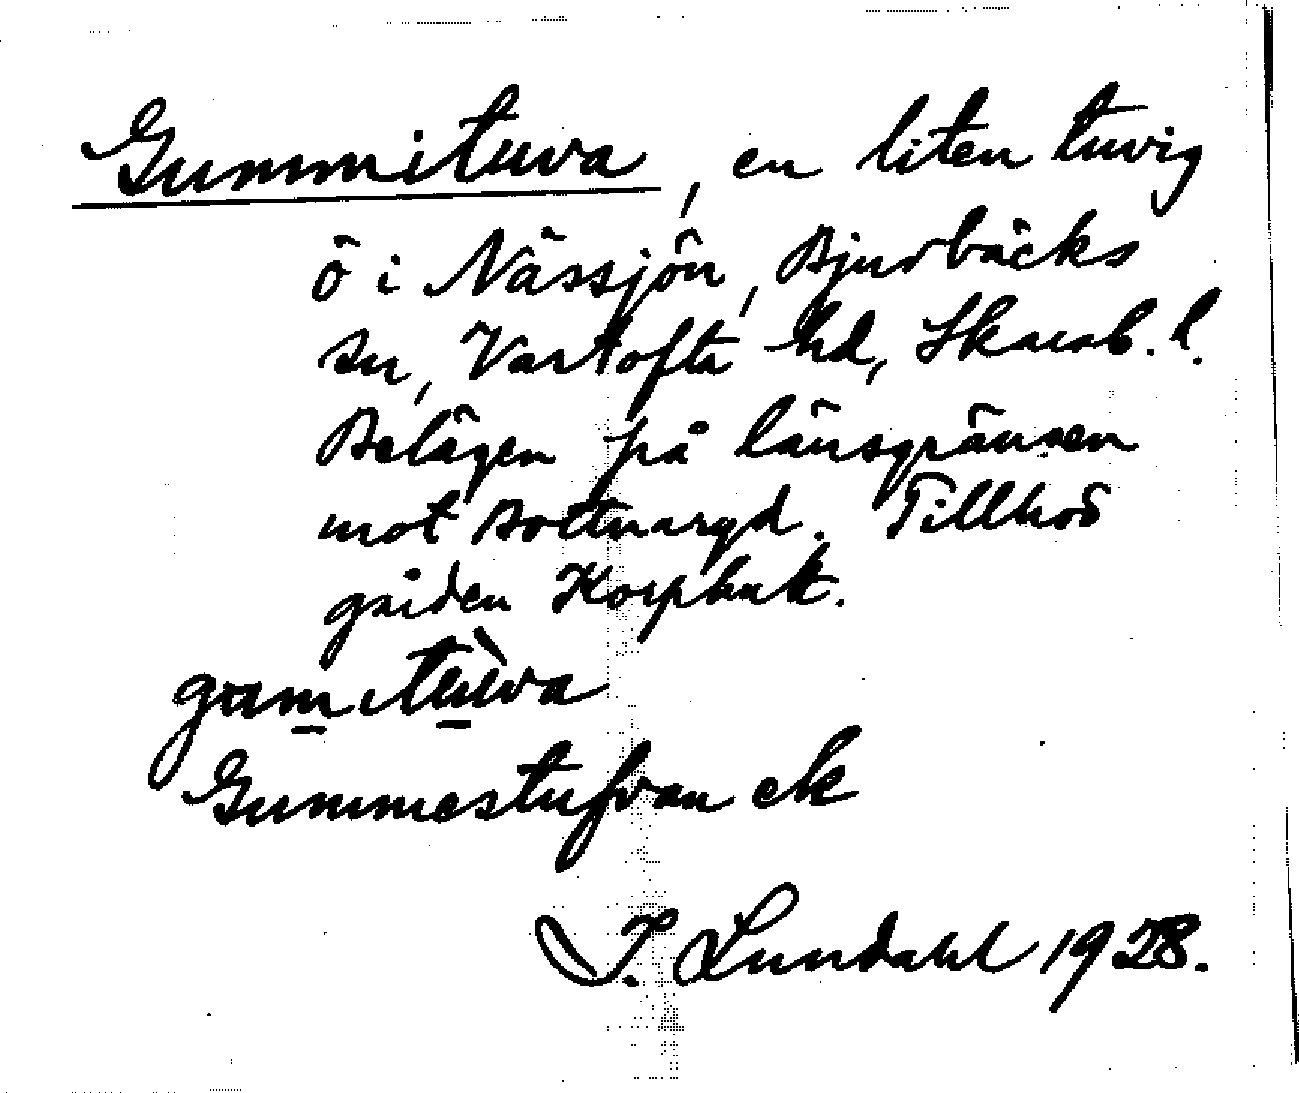 Gummituva, en liten tuvig
ö i Nässjön, Bjurbäcks
sn, Vartofta hd, Skarab. l.
Belägen på länsgränsen
mot Bottnaryd. Tillhör
gården Korphult.
gum̱itù̱̱va
Gummestufvan ek
I. Lundahl 1928.